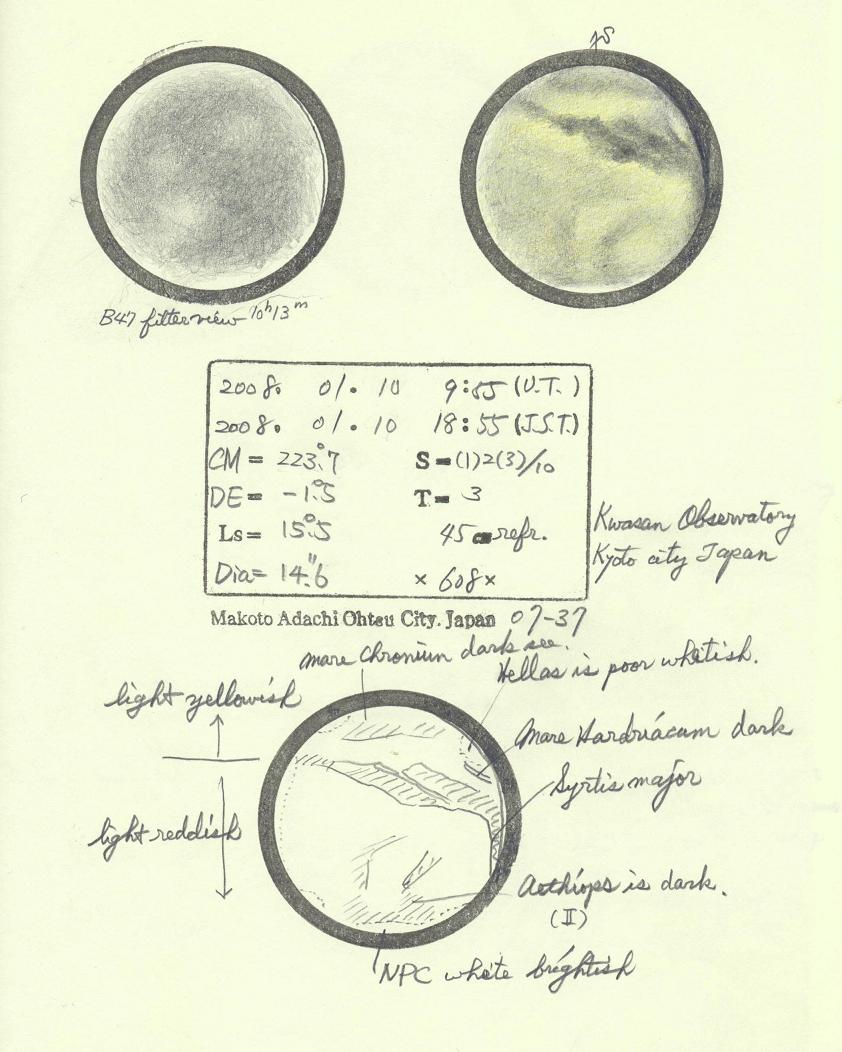 S
B47 filter view 10h13m
2008. 01. 10 9:55 (U.T.)
2008. 01. 10 18:55 (J.S.T.)
CM = 223°.7 S = (1)2(3)/10
DE = -1°.5 T = 3
Ls = 15°.5 45 cm refr.
Dia = 14".6 × 608×
Kwasan Observatory
Kyoto city Japan
Makoto Adachi Ohtsu City. Japan 07-37
mare Chronium dark see.
Hellas is poor whitish.
light yellowish
Mare Hardriácum dark
Syrtis major
light reddish
Aethiops is dark.
(II)
NPC white brightish